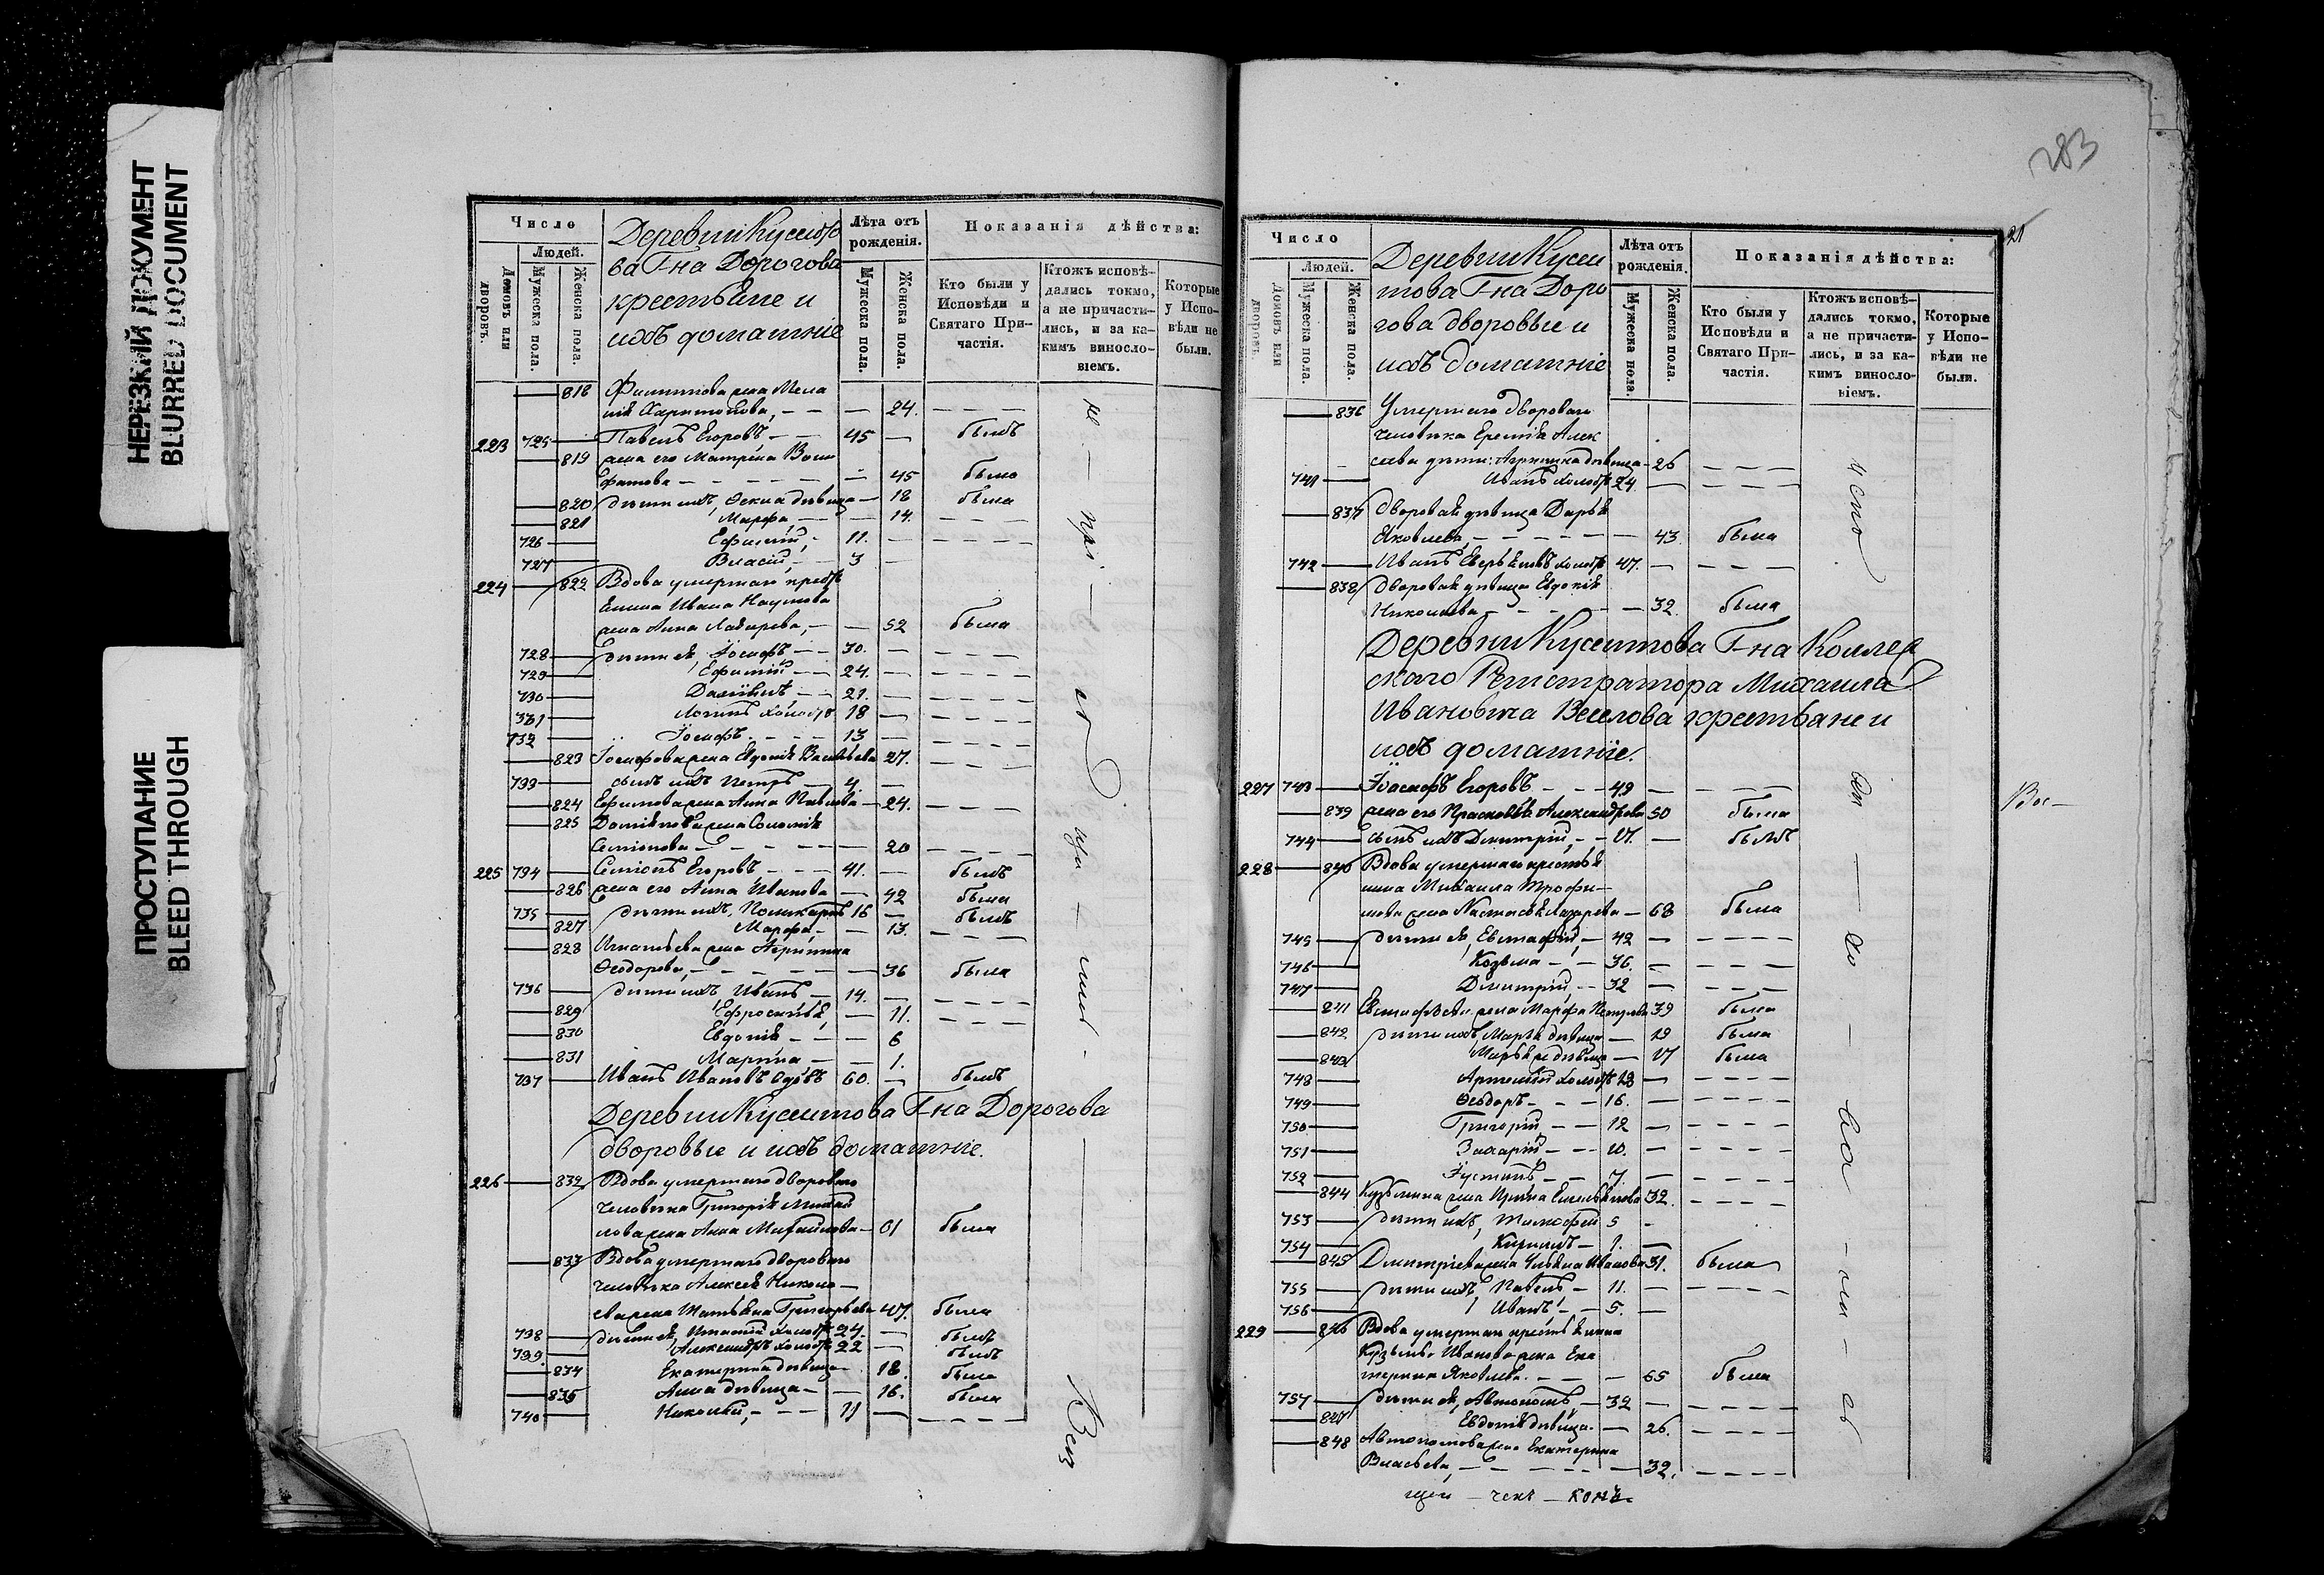 НЕРЕЗКИЙ ДОКУМЕНТ
BLURRED DOCUMENT
ПРОСТУПАНИЕ
BLEED THROUGH
Число
Людей.
Домовъ или дворовъ.
Мужеска пола.
Женска пола.
Деревни Кусеито
ва Г-на Дорогова
крестьяне и
ихъ домашніе
Лѣта отъ рожденія.
Мужеска пола.
Женска пола.
Показанія дѣйства:
Кто были у Исповѣди и Святаго При-частія.
Ктожъ исповѣ-дались токмо, а не причасти-лись, и за ка-кимъ винословіемъ.
Которые у Испо-вѣди не были.
818 жена Мела
нія Харитонова, 24.
223 725 Павелъ Егоровъ 45 былъ
819 жена его Матрена
45 была
820 дѣти ихъ, дѣвица 18 была
821 Марфа, 14.
726 Ефимій, 11.
727 Власій, 3
224 822 Вдова умершаго крестья
нина Ивана Наумова
жена Анна Лазарева, 52 была
728 дѣти ея, Іосифъ 30.
729 Ефимій 24.
730 21.
731 Логинъ холостъ 18
732 Іосифъ 13
823 Іосифова жена Евдокія Васильева 27.
733 сынъ ихъ Петръ 4
824 Ефимова жена Анна Павлова 24.
825 жена Соломія
Семіонова 20
225 734 Семіонъ Егоровъ 41. былъ
826 жена его Анна Иванова 42 была
735 дѣти ихъ, Поликарпъ 16 былъ
827 Марфа, 13.
828 Игнатьева жена Агрипина
Ѳеодорова, 36 была
736 дѣти ихъ Иванъ 14.
829 Ефросинія, 11.
830 Евдокія 6
831 Марина 1.
737 Иванъ Ивановъ 60. былъ
Деревни Кусеитова Г-на Дорогова
дворовые и ихъ домашніе.
226 832 Вдова умершаго двороваго
человѣка Григорія Михай
лова жена Анна Михайлова 61 была
833 Вдова умершаго двороваго
человѣка Алексея Никола
ева жена Татьяна Григорьева 47. была
738 дѣти ея, Игнатій холостъ 24. былъ
739 Александръ холостъ 22 былъ
834 Екатерина дѣвица 18. была
835 Анна дѣвица 16. была
740 Николай, 11
283
Число
Людей.
Домовъ или дворовъ.
Мужеска пола.
Женска пола.
Деревни Кусеи
това Г-на Доро
гова дворовые и
ихъ домашніе
Лѣта отъ рожденія.
Мужеска пола.
Женска пола.
Показанія дѣйства:
Кто были у Исповѣди и Святаго При-частія.
Ктожъ исповѣ-дались токмо, а не причасти-лись, и за ка-кимъ винословіемъ.
Которые у Испо-вѣди не были.
836 Умершаго двороваго
человѣка Еремѣя Алек
сѣева дѣти: Агрипина дѣвица 26
741 Иванъ холостъ 24.
837 Дворовая дѣвица Дарья
Яковлева, 43. была
742 Иванъ холостъ 47.
838 Дворовая дѣвица Евдокія
Николаева 32. была
Деревни Кусеитова Г-на Коллеж
скаго Регистратора Михаила
Ивановича Веселова крестьяне и
ихъ домашніе.
227 743 Іоасафъ Егоровъ 49
839 жена его Прасковья Александрова 50 была
744 сынъ ихъ Дмитрій, 17. былъ
228 840 Вдова умершаго крестья
нина Михаила Трофи-
мова жена Настасья Лазарева 68 была
745 дѣти ея, Евстафій, 42
746 Козьма 36.
747 Дмитрій, 32
841 Евстафьева жена Марфа Петрова 39 была
842 дѣти ихъ, Марья дѣвица 19 была
843 Марья же дѣвица 17 была
748 Артемій холостъ 18
749 Ѳеодоръ 16.
750 Григорій, 12
751 Захарій 10.
752 Іустинъ 7.
844 Кузьмина жена Ирина Емельянова 32.
753 дѣти ихъ, Тимофей 5
754 Кирилъ 1.
845 Дмитріева жена Ульяна Иванова 31. была
755 дѣти ихъ, Павелъ 11.
756 Иванъ 5.
229 846 Вдова умершаго крестьянина
Кузьмы Иванова жена Ека
терина Яковлева. 65 была
757 дѣти ея, Автономъ, 32
847 Евдокія дѣвица. 26.
848 Автономова жена Екатерина
Власьева, 32.